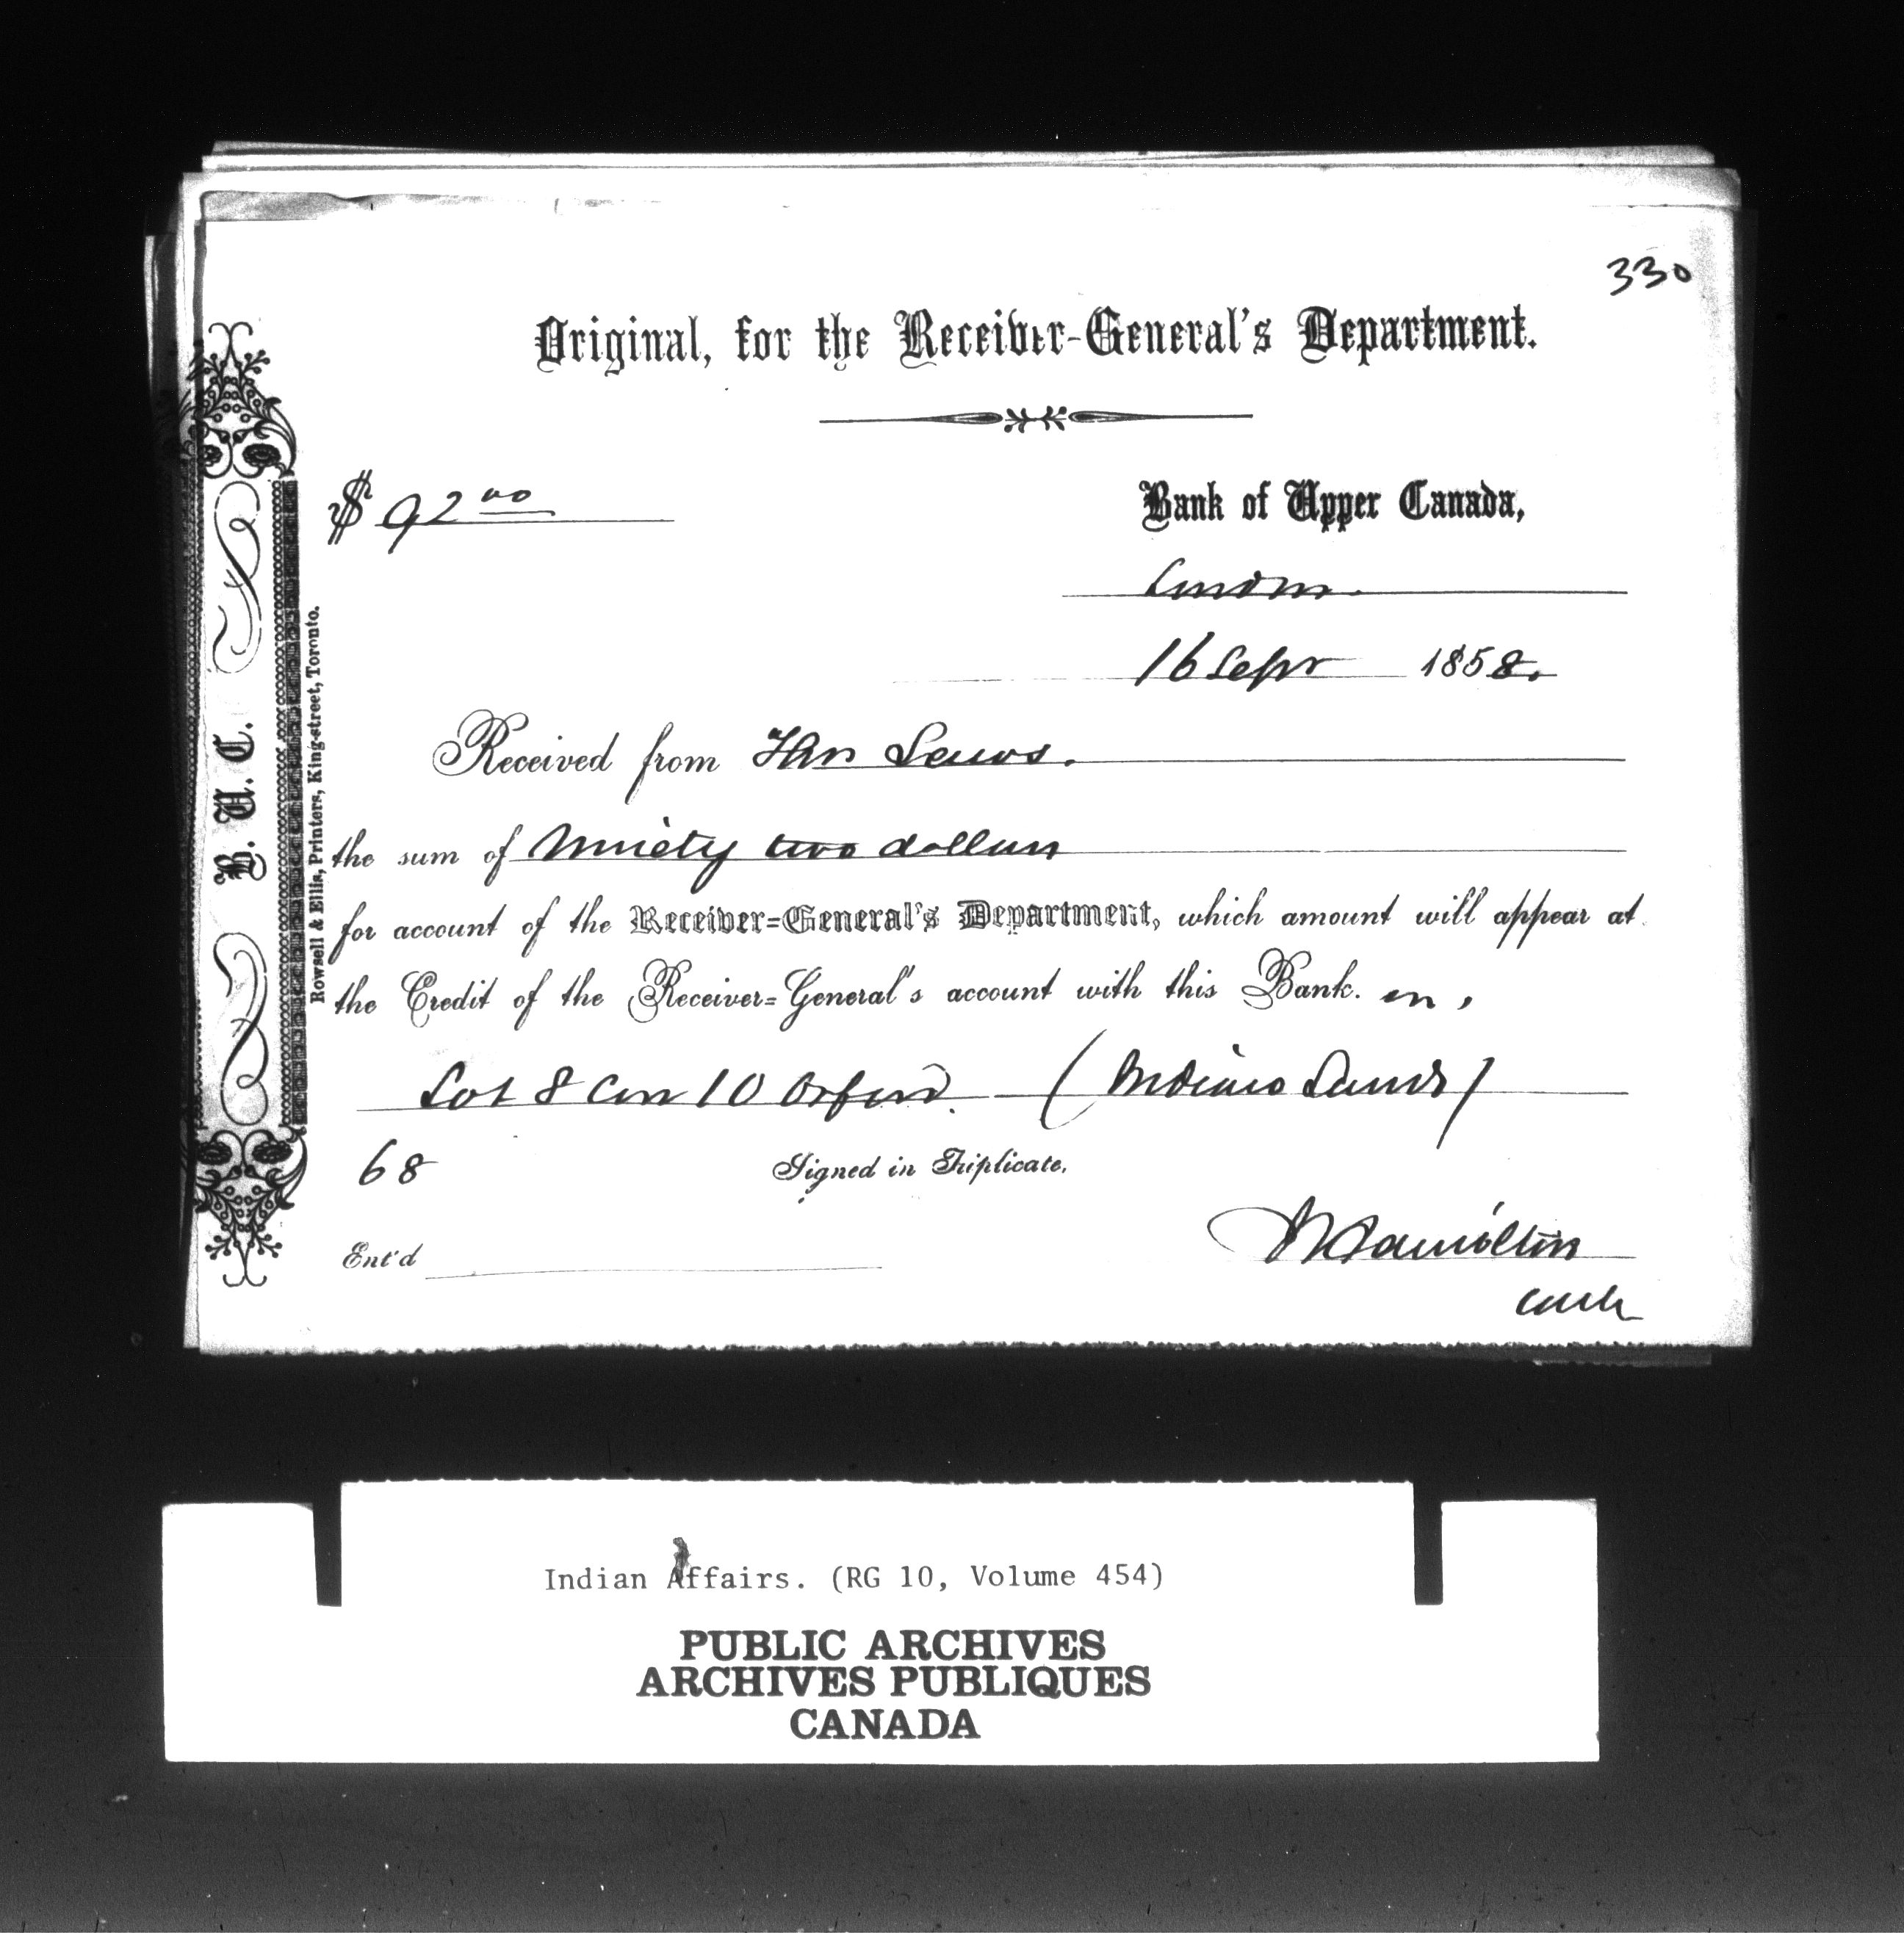 330
Original, for the Receiver-General's Department.
$ 92 00
Bank of Upper Canada,
London.
16 Sept 1858.
Received from Lewis.
the sum of Ninety two dollars
for account of the Receiver=General's Department, which amount will appear at
the Credit of the Receiver=General's account with this Bank. on,
Lot 8 Con 10 Orford. (Indians Lands)
68
Signed in Triplicate.
Hamilton
Ent'd
B. U. C.
Rowsell & Ellis, Printers, King-street, Toronto.
Indian Affairs. (RG 10, Volume 454)
PUBLIC ARCHIVES
ARCHIVES PUBLIQUES
CANADA